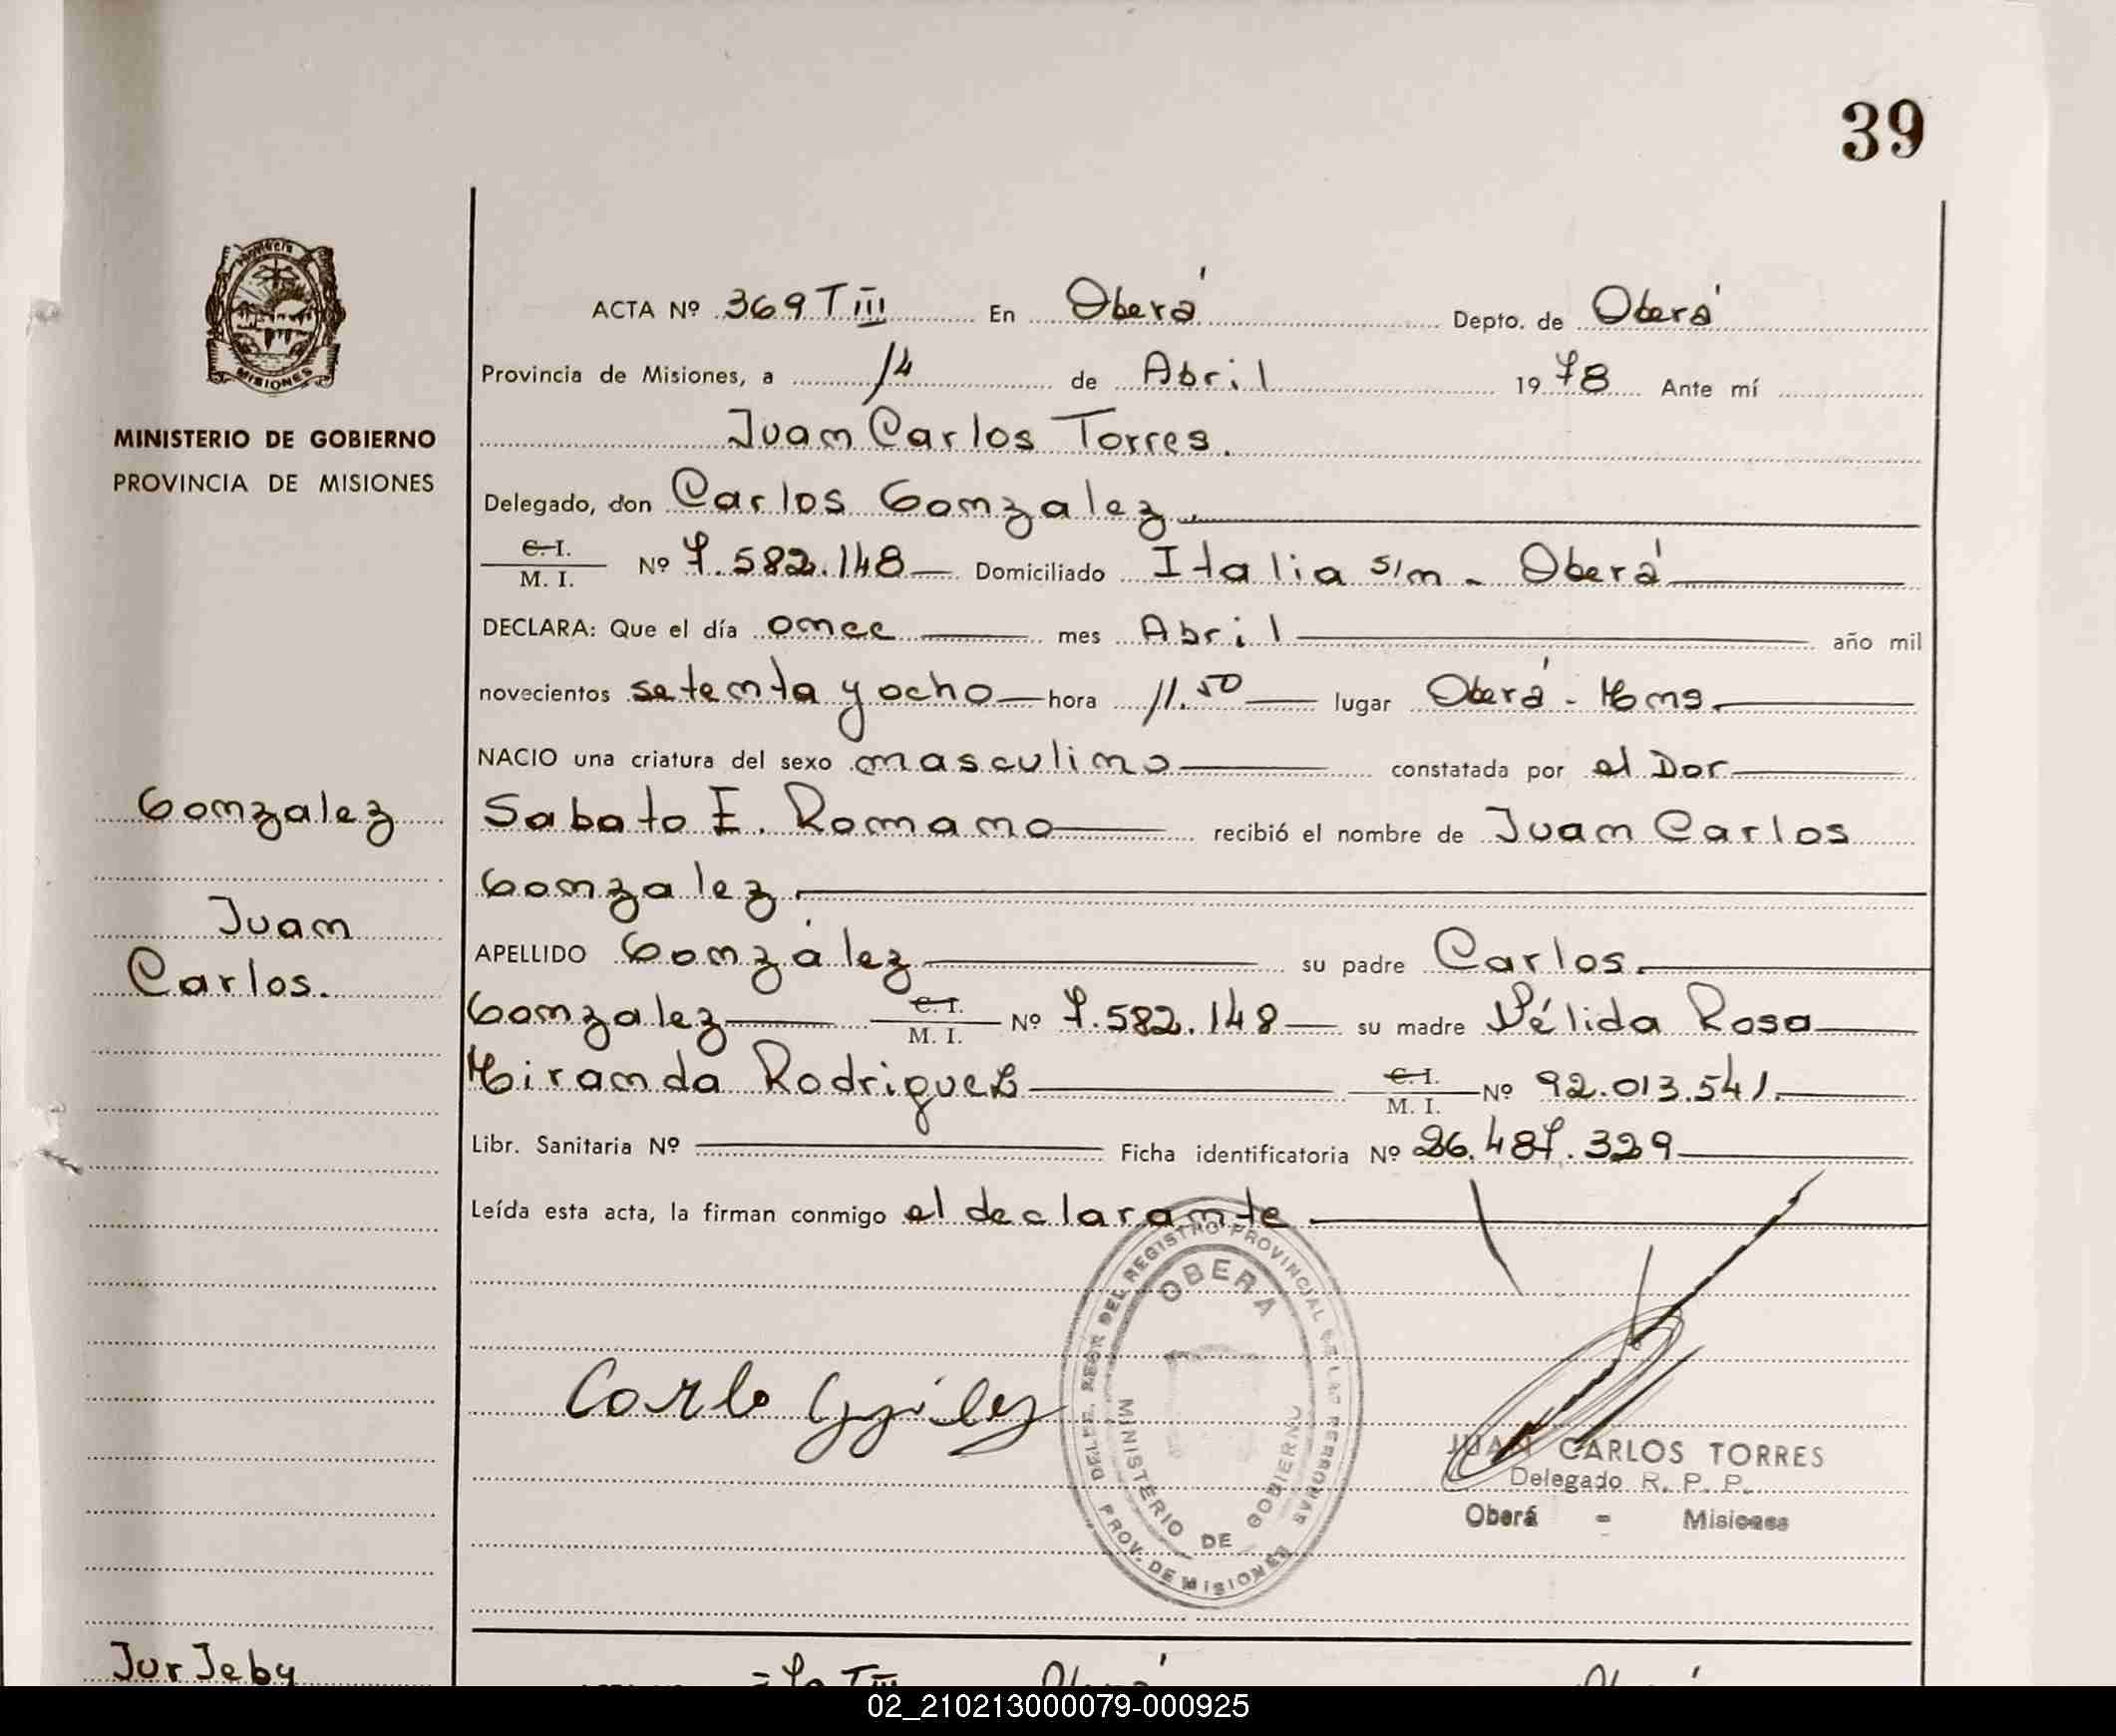 39
PROVINCIA
MISIONES
MINISTERIO DE GOBIERNO
PROVINCIA DE MISIONES
ACTA Nº 369 T III En Oberá Depto. de Oberá
Provincia de Misiones, a 14 de Abril 1978 Ante mí
Juan Carlos Torres.
Delegado, don Carlos Gonzalez
C. I.
M. I. Nº 7.582.148 Domiciliado Italia s/n - Oberá
DECLARA: Que el día once mes Abril año mil
novecientos setenta y ocho hora 11.50 lugar Oberá - Mns
NACIO una criatura del sexo masculino constatada por el Dor
Sabato E. Romano recibió el nombre de Juan Carlos
Gonzalez
APELLIDO González su padre Carlos
Gonzalez C. I. M. I. Nº 7.582.148 su madre Nélida Rosa
Miranda Rodriguez C. I. M. I. Nº 92.013.541.
Libr. Sanitaria Nº Ficha identificatoria Nº 26.487.329
Leída esta acta, la firman conmigo el declarante
Gonzalez
Juan
Carlos.
DEL REGISTRO PROVINCIAL DE LAS PERSONAS
OBERA
MINISTERIO DE GOBIERNO
PROV. DE MISIONES
JUAN CARLOS TORRES
Delegado R. P. P.
Oberá - Misiones
Jur Jeby
02_210213000079-000925